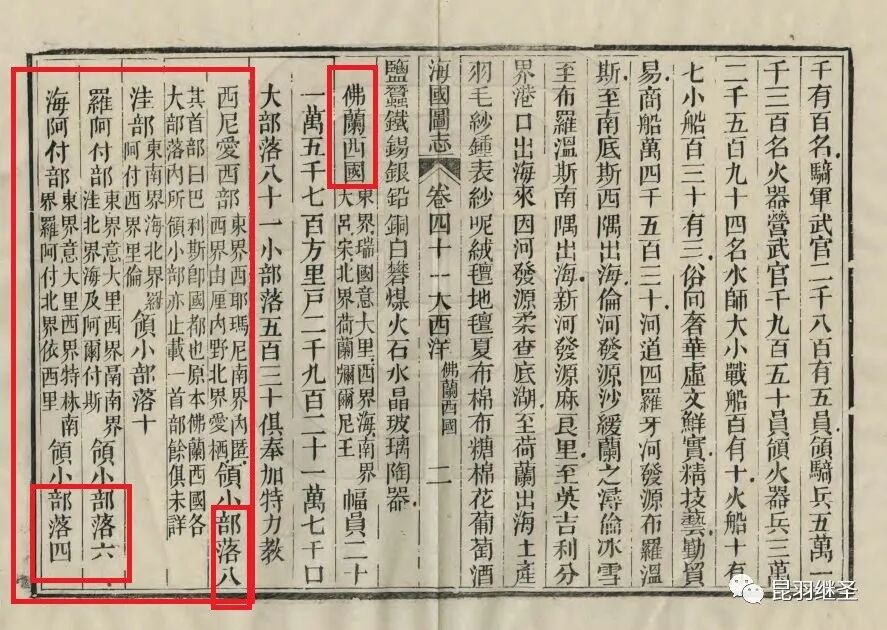 千有百名騎軍武官二千八百有五員領騎兵五萬一
千三百名火器營武官千九百五十員領火器兵三萬
二千五百九十四名水師大小戰船百有十火船十有
七小船百三十有三俗尚奢華虛文鮮實精技藝勤貿
易商船萬四千五百三十河道四羅牙河發源布羅溫
斯至南底斯西隅出海倫河發源沙緩蘭之潯倫冰雪
至布羅溫斯南隅出海新河發源麻艮里至英吉利分
界港口出海來因河發源柔查底湖至荷蘭出海土產
羽毛紗鍾表紗呢絨氊地氊夏布棉布糖棉花葡萄酒
海國圖志 卷四十一大西洋 佛蘭西國 二
鹽蠶鐵錫銀鉛銅白礬煤火石水晶玻璃陶器
佛蘭西國 東界瑞國意大里西界海南界大呂宋北界荷蘭彌爾尼王 幅員二十
一萬五千七百方里戶二千九百二十一萬七千口
大部落八十一小部落五百三十俱奉加特力教
西尼愛西部 東界西耶瑪尼南界內厘西界由厘內野北界愛栖 領小部落八
其首部曰巴利斯卽國都也原本佛蘭西國各
大部落內所領小部亦止載一首部餘俱未詳
洼部 東南界海北界羅阿付西界里倫 領小部落十
羅阿付部 東界意大里西界鬲南界洼北界海及阿爾付斯 領小部落六
海阿付部 東界意大里西界特林南界羅阿付北界依西里 領小部落四
昆羽继圣